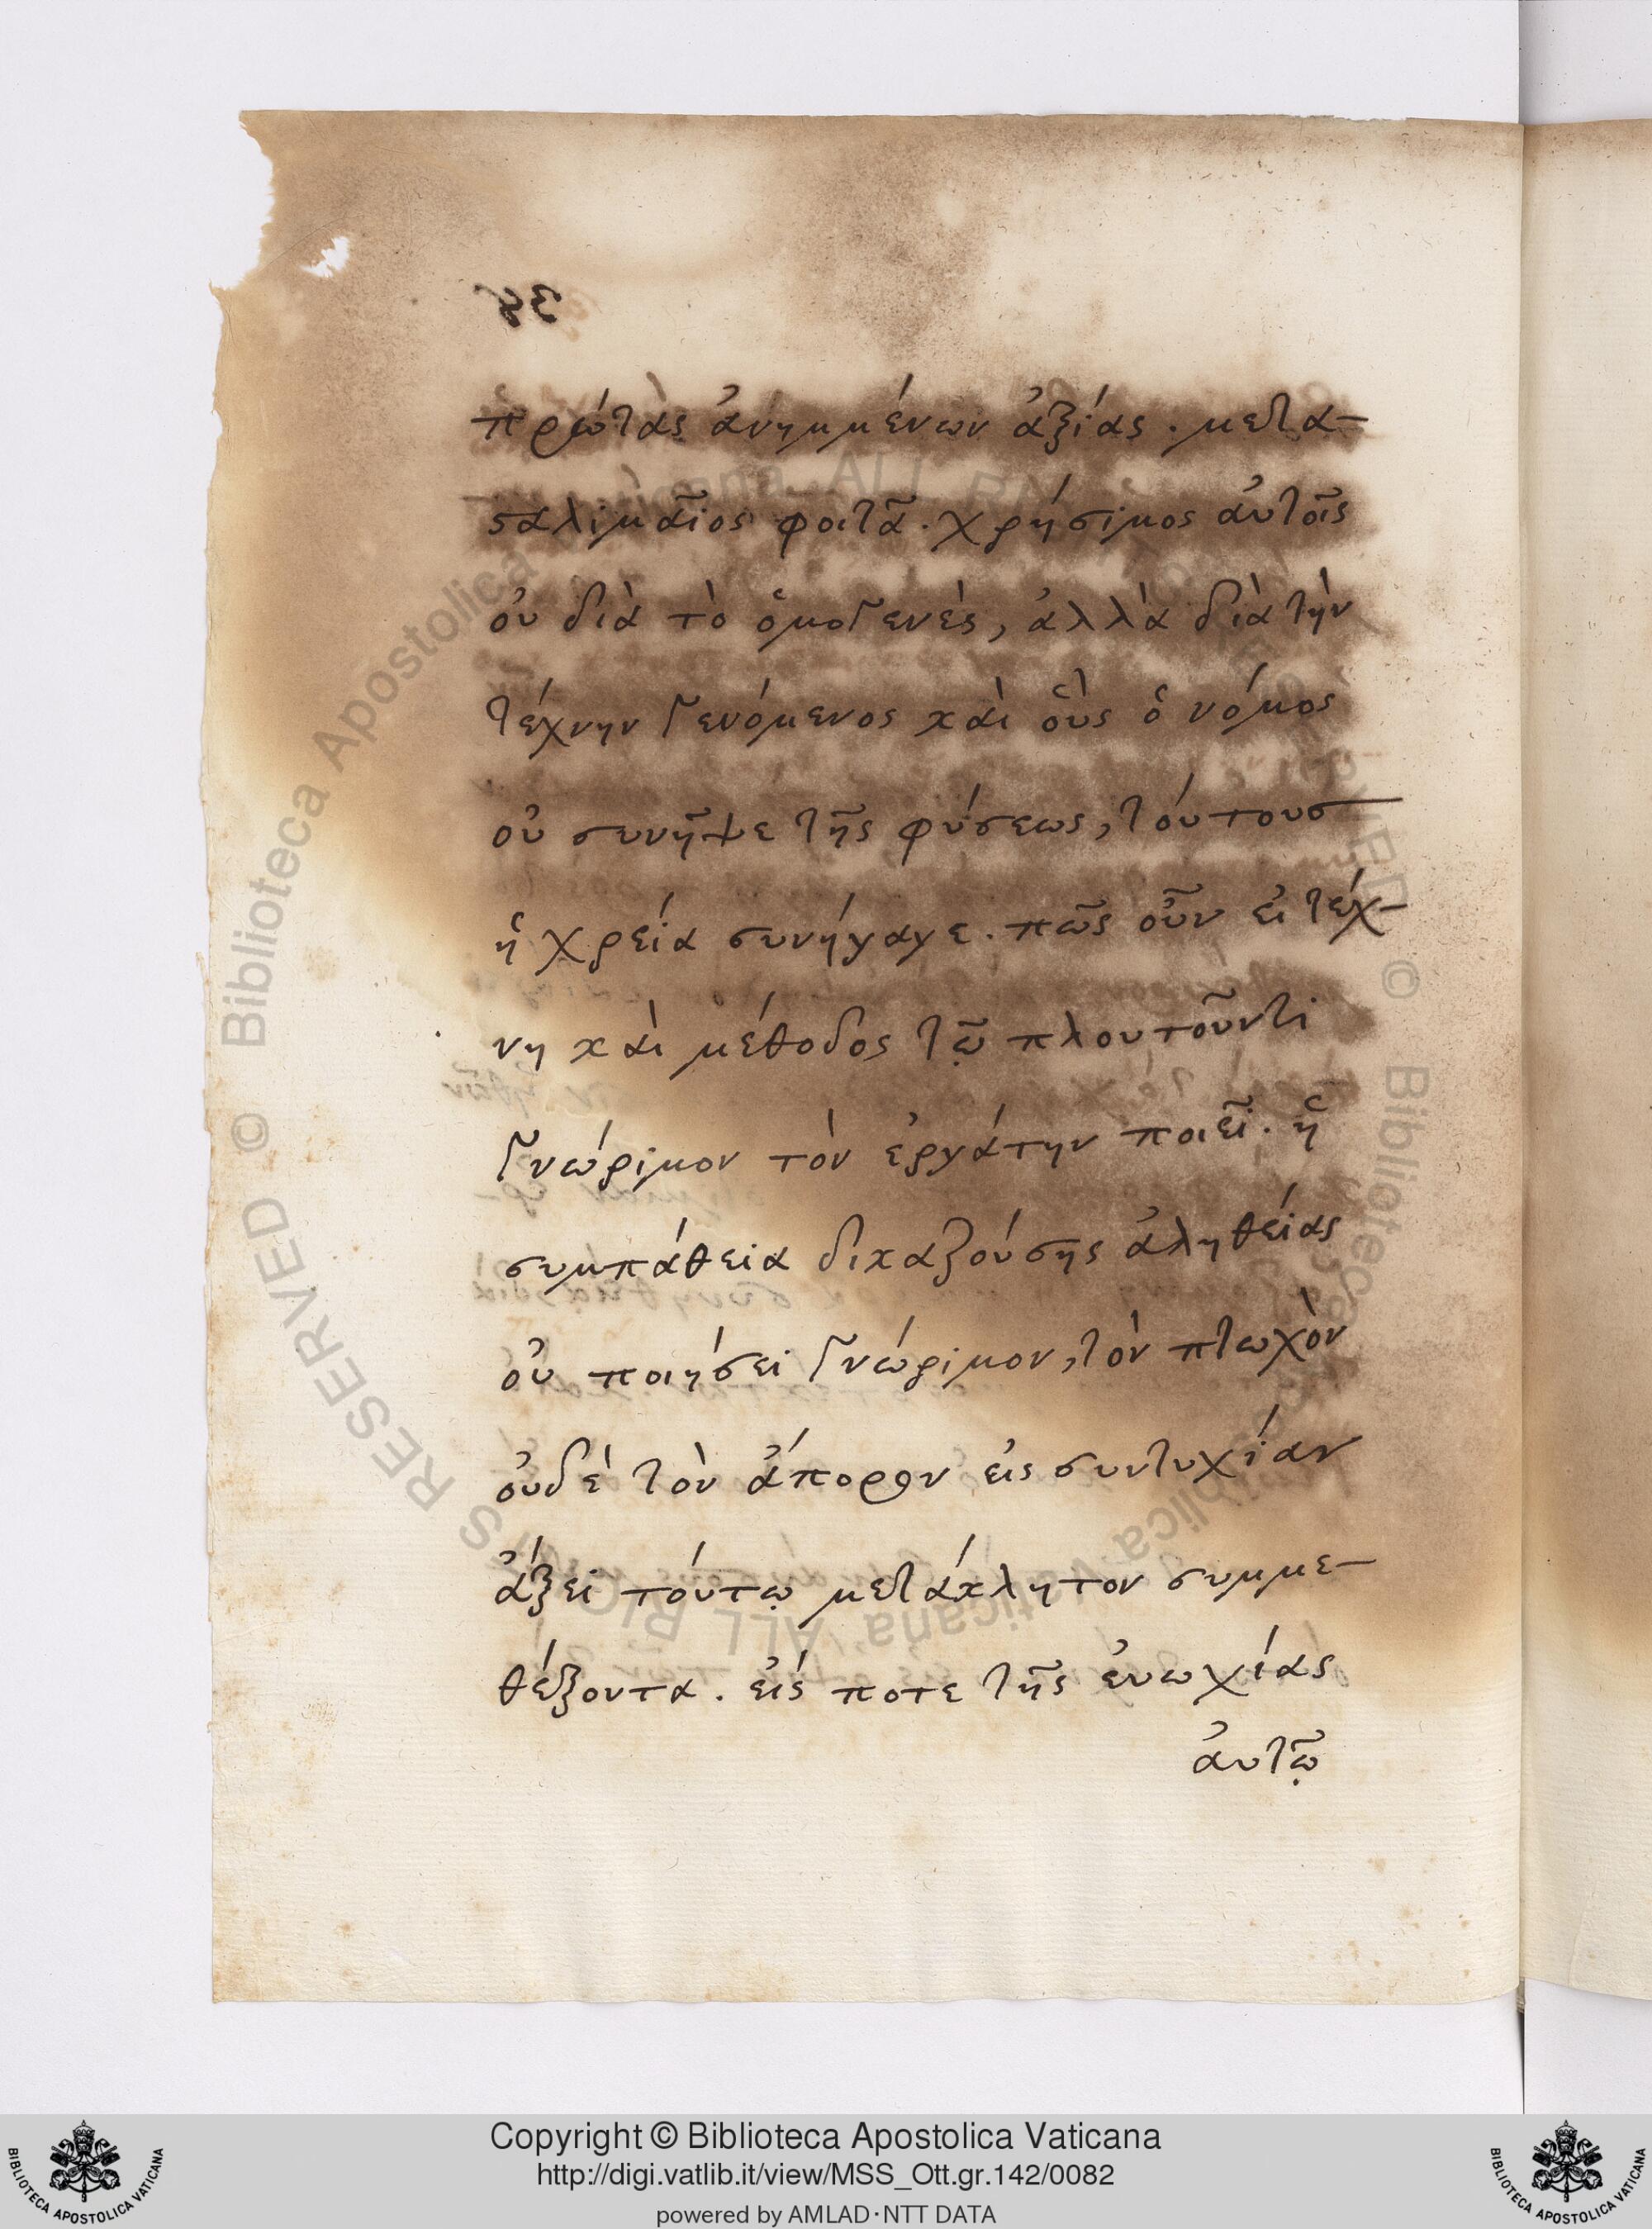 πρώτας ἀνημμένων ἀξίας. μετα-
σταλιμαῖος φοιτᾶ. χρήσιμος αὐτοῖς
οὐ διὰ τὸ ὁμογενὲς, ἀλλὰ διὰ τὴν
τέχνην γενόμενος καὶ οὓς ὁ νόμος
οὐ συνῆψε τῆς φύσεως, τούτους
ἡ χρεία συνήγαγε. πῶς οὖν εἰ τέχ-
νη καὶ μέθοδος τῷ πλουτοῦντι
γνώριμον τὸν ἐργάτην ποιεῖ. ἡ
συμπάθεια δικαζούσης ἀληθείας
οὐ ποιήσει γνώριμον, τὸν πτωχὸν
οὐδὲ τὸν ἄπορον εἰς συντυχίαν
ἄξει τούτῳ μετάκλητον συμμε-
θέξοντα. εἴς ποτε τῆς εὐωχίας
αὐτῷ
Copyright © Biblioteca Apostolica Vaticana
http://digi.vatlib.it/view/MSS_Ott.gr.142/0082
powered by AMLAD·NTT DATA